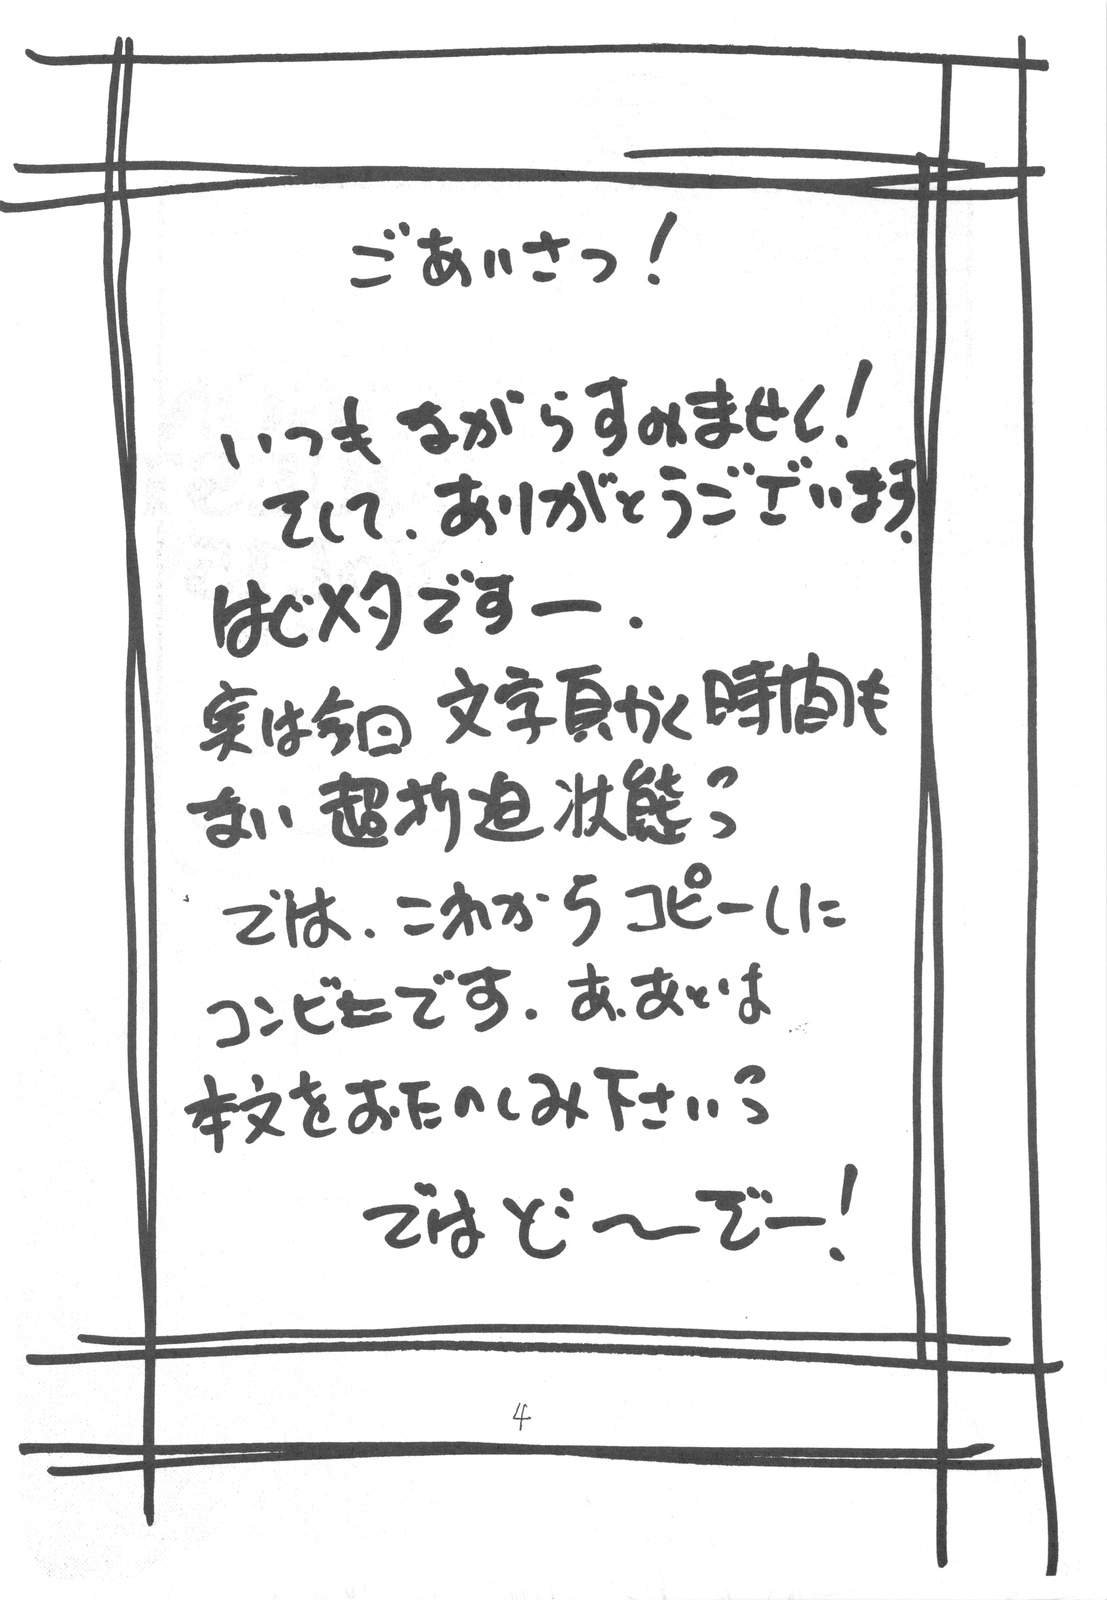 ごあいさつ!
いつもながらすみません!
そして、ありがとうございます。
はじメタですー.
実は今回 文字頁かく時間も
ない 超切迫 状態っ
では、これから コピーしに
コンビニです. あ、あとは
本文をおたのしみ下さいっ
ではど〜ぞー!
4